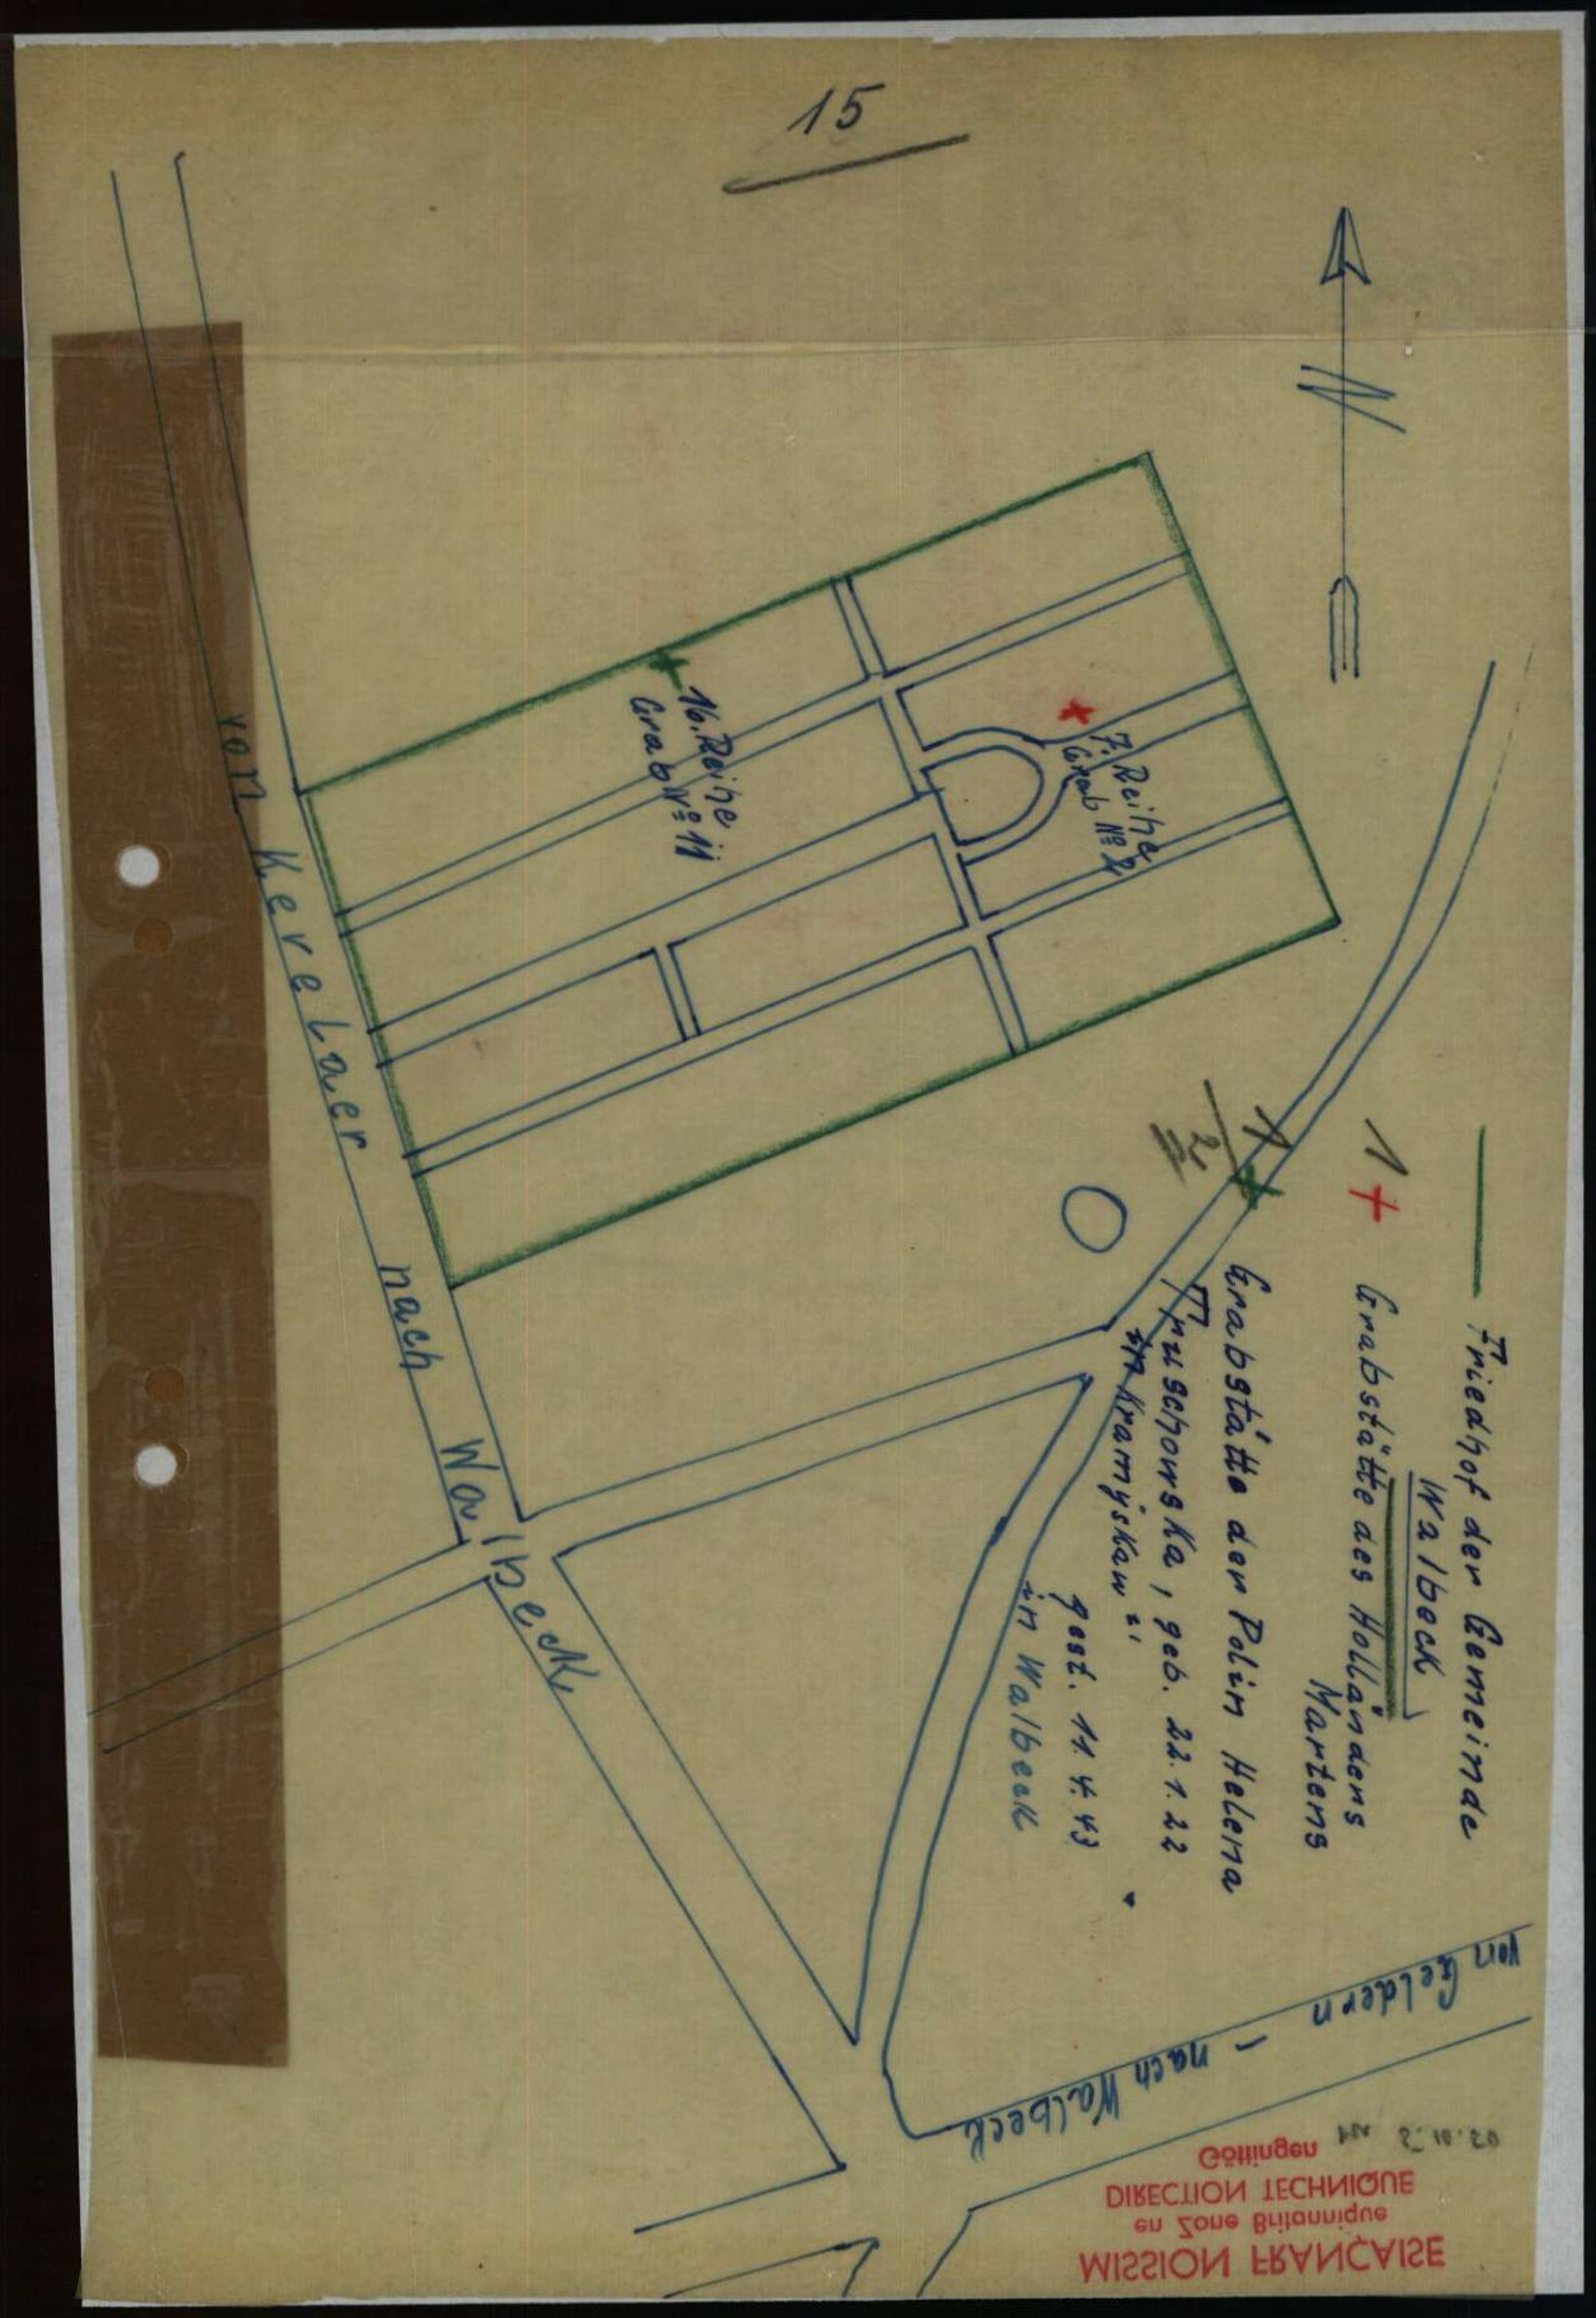 15
N
Friedhof der Gemeinde
Walbeck
1 + Grabstätte des Holländers
Martens
1
2
Grabstätte der Polin Helena
Truschowska, geb. 22.1.22
in
gest. 11.4.43
in Walbeck
7. Reihe
Grab №
16. Reihe
Grab № 11
von Kevelaer nach Walbeck
von Geldern - nach Walbeck
MISSION FRANÇAISE
en Zone Britannique
DIRECTION TECHNIQUE
Göttingen